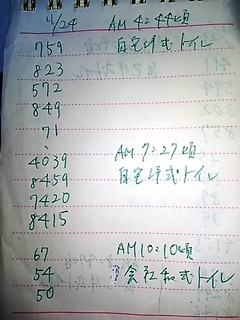 11/24 AM 4:44頃
759 自宅洋式トイレ
823
572
849
71
、
4039 AM 7:27頃
8459 自宅洋式トイレ
7420
8415
67 AM10:10頃
54 会社和式トイレ
50